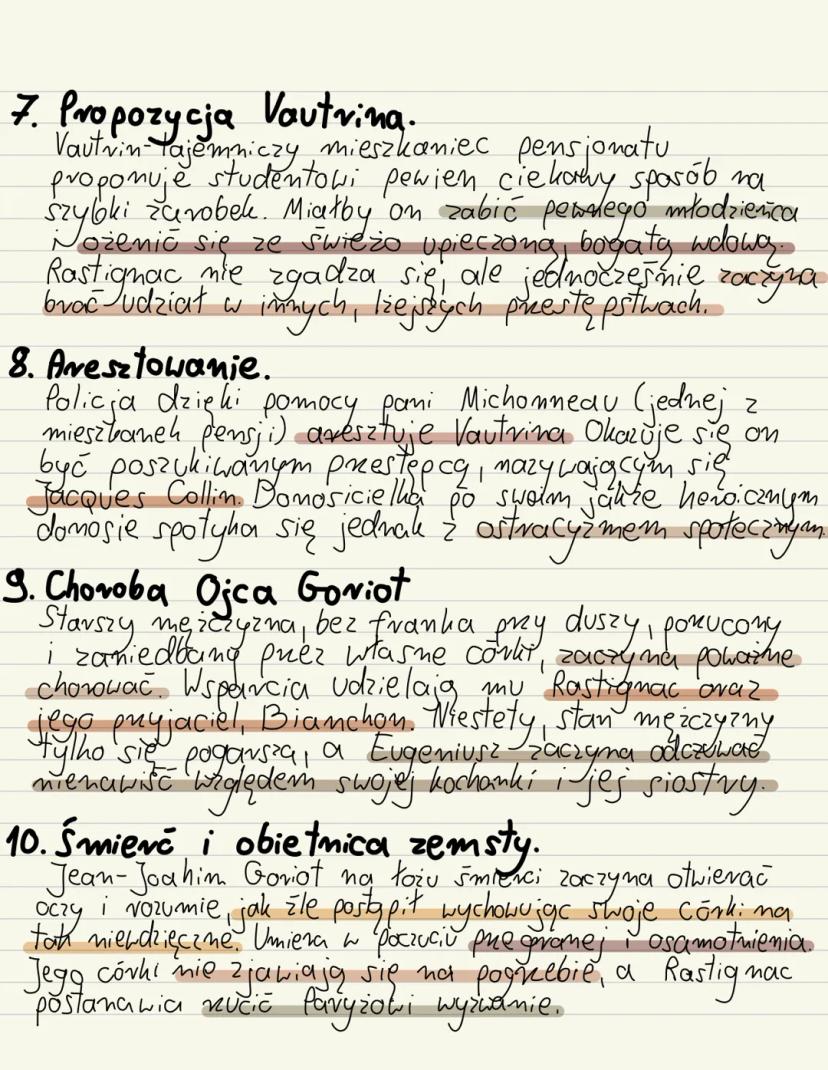 7. Propozycja Vautrina.
Vautrin-tajemniczy mieszkaniec pensjonatu
proponuje studentowi pewien ciekawy sposób na
szybki zarobek. Miałby on zabić pewnego młodzieńca
i ożenić się ze świeżo upieczoną, bogatą wdową.
Rastignac nie zgadza się, ale jednocześnie zaczyna
brać udział w innych, lżejszych przestępstwach.
8. Aresztowanie.
Policja dzięki pomocy pani Michonneau (jednej z
mieszkanek pensji) aresztuje Vautrina Okazuje się on
być poszukiwanym przestępcą, nazywającym się
Jacques Collin. Donosicielka po swoim jakże heroicznym
donosie spotyka się jednak z ostracyzmem społecznym.
9. Choroba Ojca Goriot
Starszy mężczyzna, bez franka przy duszy, porzucony
i zaniedbany przez własne córki, zaczyna poważnie
chorować. Wsparcia udzielają mu Rastignac oraz
jego przyjaciel, Bianchon. Niestety, stan mężczyzny
tylko się pogarsza, a Eugeniusz zaczyna odczuwać
nienawiść względem swojej kochanki i jej siostry.
10. Śmierć i obietnica zemsty.
Jean-Joahim Goriot na łożu śmierci zaczyna otwierać
oczy i rozumie, jak źle postąpił wychowując swoje córki na
tak niewdzięczne. Umiera w poczuciu przegranej i osamotnienia.
Jego córki nie zjawiają się na pogrzebie, a Rastignac
postanawia rzucić Paryżowi wyzwanie.